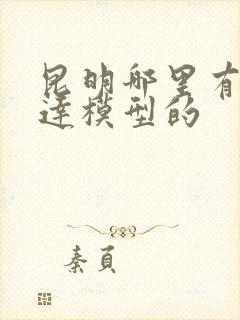 昆明哪里有
达模型的
秦頁